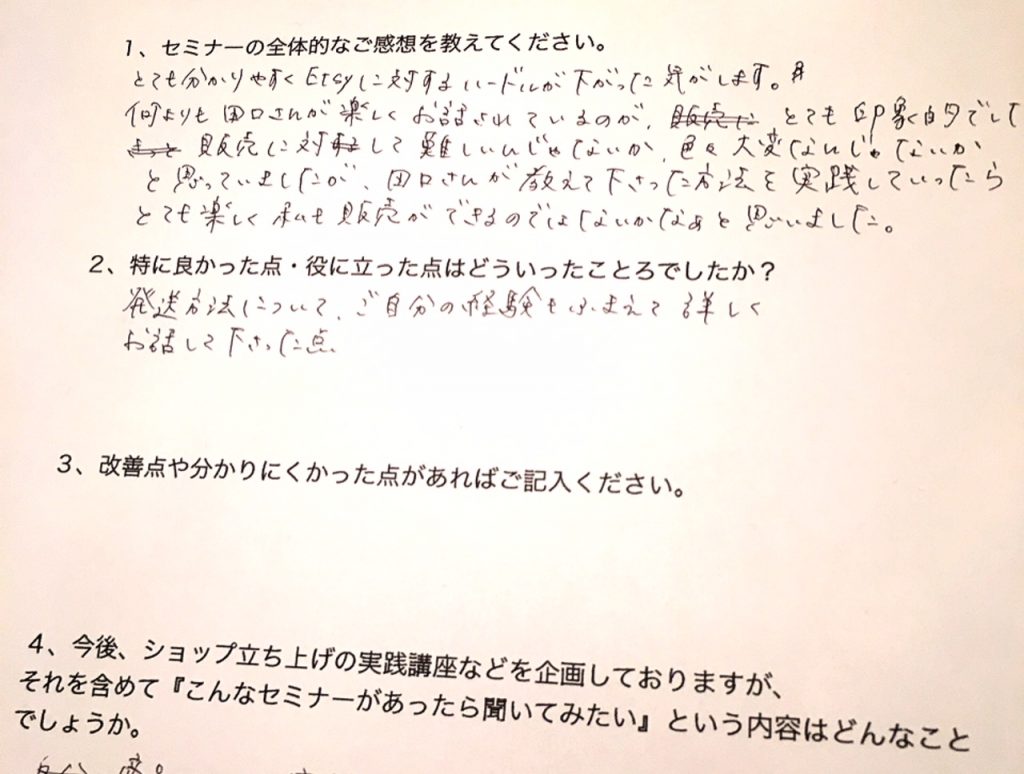 1、セミナーの全体的なご感想を教えてください。
とても分かりやすくEtsyに対するハードルが下がった気がします。
何よりも田口さんが楽しくお話されているのが、販売に とても印象的でした
販売に対して難しいんじゃないか、色々大変なんじゃないか
と思っていましたが、田口さんが教えて下さった方法を実践していったら
とても楽しく私も販売ができるのではないかなぁと思いました。
2、特に良かった点・役に立った点はどういったことろでしたか？
発送方法について、ご自分の経験もふまえて詳しく
お話して下さった点
3、改善点や分かりにくかった点があればご記入ください。
4、今後、ショップ立ち上げの実践講座などを企画しておりますが、
それを含めて『こんなセミナーがあったら聞いてみたい』という内容はどんなこと
でしょうか。